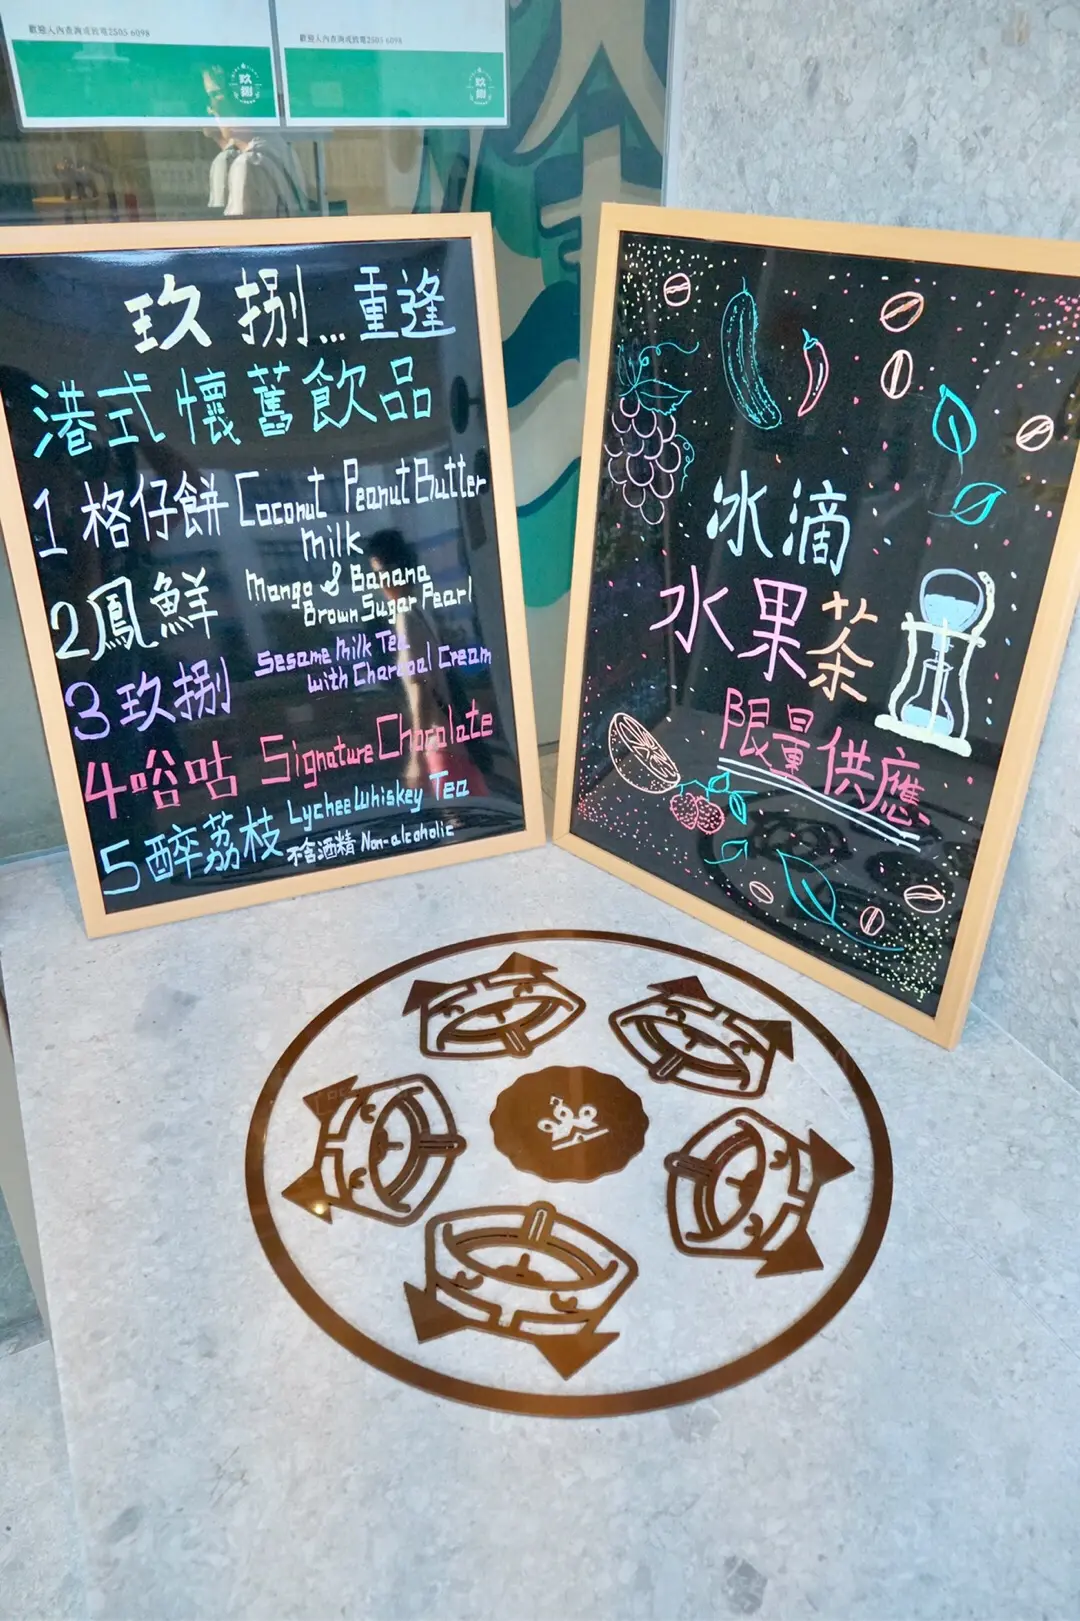 歡迎入內查詢或致電2505 6098
歡迎入內查詢或致電2505 6098
玖捌
玖捌
玖捌...重逢
港式懷舊飲品
1 格仔餅 Coconut Peanut Butter
Milk
2 鳳鮮 Mango & Banana
Brown Sugar Pearl
3 玖捌 Sesame Milk Tea
with Charcoal Cream
4 哈咕 Signature Chocolate
5 醉荔枝 Lychee Whiskey Tea
不含酒精 Non-alcoholic
冰滴
水果茶
限量供應